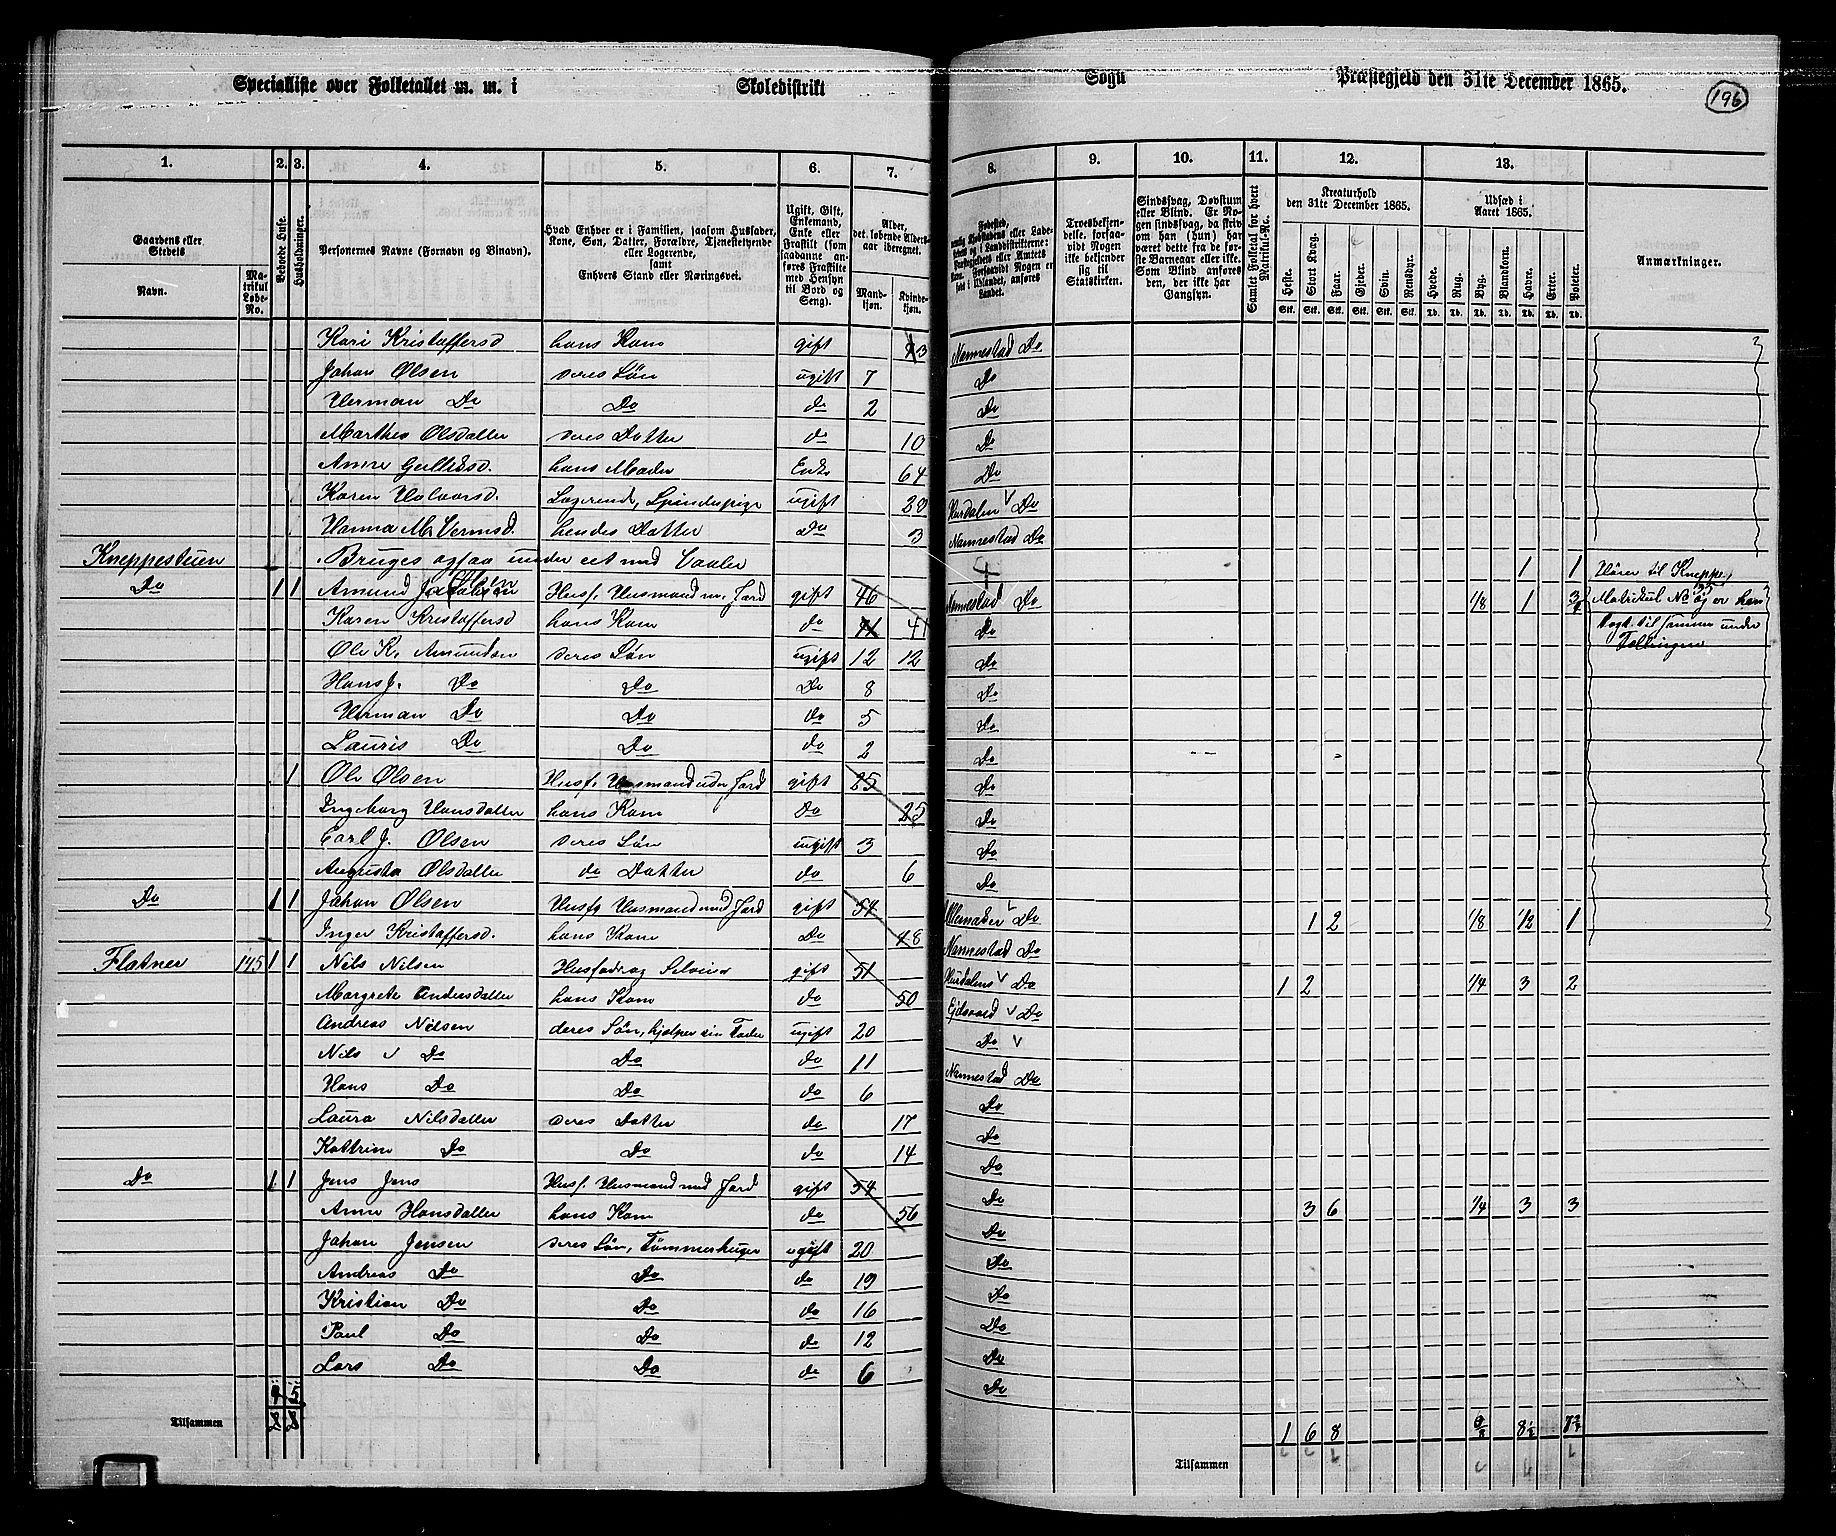 Specialliste over Folketallet m. m. i Skoledistrikt Sogn Præstegjeld den 31te December 1865.
196
1. 2. 3. 4. 5. 6. 7. 8. 9. 10. 11. 12. 13.
Gaardens eller Stedets Navn.
Matrikul Løbe-No.
Beboede Huse.
Husholdninger.
Personernes Navne (Fornavn og Binavn).
Hvad Enhver er i Familien, (saasom Husfader, Kone, Søn, Datter, Forældre, Tjenestetyende eller Logerende, samt Enhvers Stand eller Næringsvei.
Ugift, Gift, Enkemand, Enke eller Fraskilt (som saadanne anføres Fraskilte med Hensyn til Bord og Seng).
Alder, det løbende Aldersaar iberegnet.
Mandkjøn. Kvindekjøn.
Troesbekjendelse, forsaavidt Nogen ikke bekjender sig til Statskirken.
Sindssvag, Døvstum eller Blind. Er Nogen sindssvag, da skriv om han (hun) har været dette fra de første Barneaar eller ikke. Som Blind anføres den, der ikke har Gangsyn.
Samlet Folketal for hvert Matrikul-Nr.
Kreaturhold den 31te December 1865.
Heste. Stort Kvæg. Faar. Gjeder. Svin. Rensdyr.
Udsæd i Aaret 1865.
Hvede. Rug. Byg. Blandkorn. Havre. Erter. Poteter.
Anmærkninger.
Kari Kristoffersd hans Kone gift 43 Nannestad Do
Johan Olsen deres Søn ugift 7 Do
Herman Do Do do 2 Do
Marthea Olsdatter deres Datter do 10 Do
Anne Gulliksd. hans Moder Enke 64 Do
Karen Halvorsd. Logerende, Spindepige ugift 28 Hurdalen Do
Hanna M. Hermsd hendes Datter Do 3 Nannestad Do
Kneppestuen Bruges ogsaa under eet med 1 1 Hører til Kneppe
Do 1 1 Amund Olsen Husf. Husmand m. Jord gift 46 Nannestad Do 1/8 1 3/4 Matrikul No
Karen Kristoffersd hans Kone do 41 41 Do til sammen under
Ole K. Amundsen deres Søn ugift 12 12 Do Tællingen
Hans J. Do Do Do 8 Do
Herman Do Do do 5 Do
Lauris Do Do do 2 Do
1 Ole Olsen Husf. Husmand uden Jord gift 25 Do
Ingeborg Hansdatter hans Kone Do 25 Do
Carl J. Olsen deres Søn ugift 3 Do
Augusta Olsdatter do Datter do 6 Do
Do 1 1 Johan Olsen Husf Husmand med Jord gift 54 Ullensaker Do 1 2 1/8 1/2 1
Inger Kristoffersd. hans Kone Do 48 Nannestad Do
Flatner 145 1 1 Nils Nilsen Husfader og Selveier gift 51 Hurdalen Do 1 2 1/4 3 2
Margrete Andersdatter hans Kone do 50 Ejdsvold Do
Andreas Nilsen deres Søn, hjælper sin Fader ugift 20 Do
Nils Do Do do 11 Nannestad Do
Hans Do Do do 6 Do
Laura Nilsdatter deres Datter do 17 Do
Kattrine Do Do do 14 Do
Do 1 1 Jens Jens Husf. Husmand med Jord gift 54 Do 3 6 1/4 3 3
Anne Hansdatter hans Kone do 56 Do
Johan Jensen deres Søn, Tømmerhuger ugift 20 Do
Andreas Do Do do 19 Do
Kristian Do Do do 16 Do
Paul Do Do do 12 Do
Lars Do Do do 6 Do
4 5
Tilsammen 1 6 8
Tilsammen